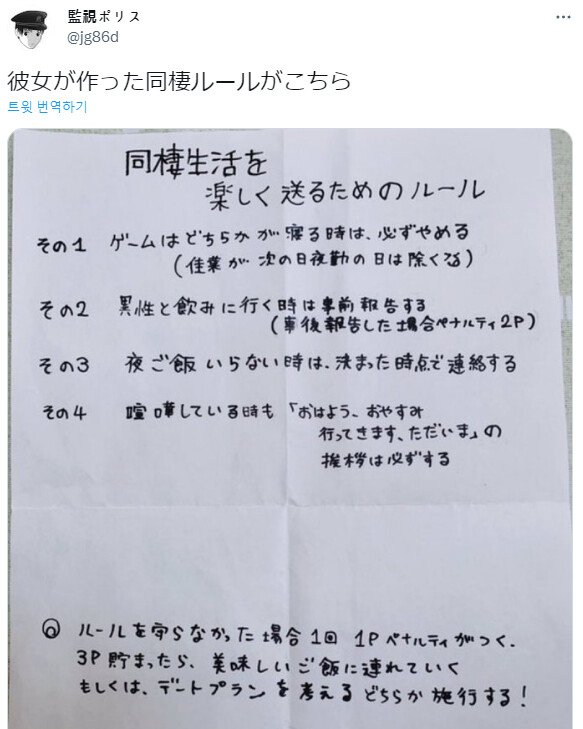 監視ポリス
@jg86d
彼女が作った同棲ルールがこちら
트윗 번역하기
同棲生活を
楽しく送るためのルール
その1 ゲームはどちらかが寝る時は、必ずやめる
(佳業が次の日夜勤の日は除くる)
その2 異性と飲みに行く時は事前報告する
(事後報告した場合ペナルティ2P)
その3 夜ご飯いらない時は、決まった時点で連絡する
その4 喧嘩している時も「おはよう、おやすみ
行ってきます、ただいま」の
挨拶は必ずする
◎ ルールを守らなかった場合1回 1Pペナルティがつく.
3P貯まったら、美味しいご飯に連れていく
もしくは、デートプランを考えるどちらか施行する!